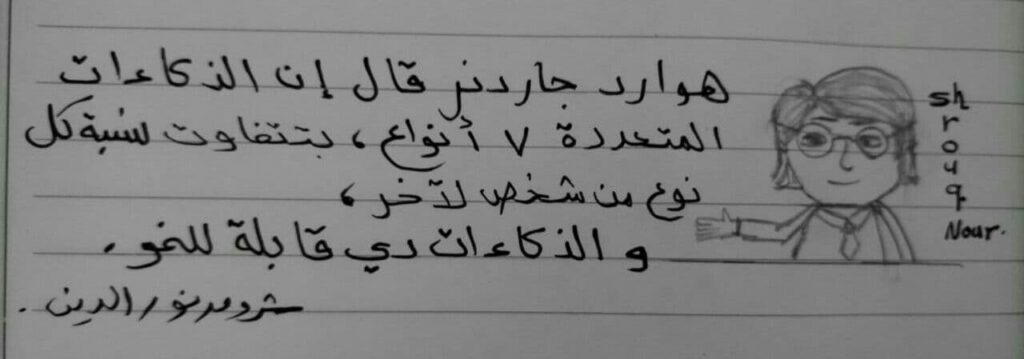 هوارد جاردنر قال إن الذكاءات
المتعددة ٧ أنواع، بتتفاوت نسبة كل
نوع من شخص لآخر،
و الذكاءات دي قابلة للنمو.
شروق نور الدين.
shrouq
Nour.